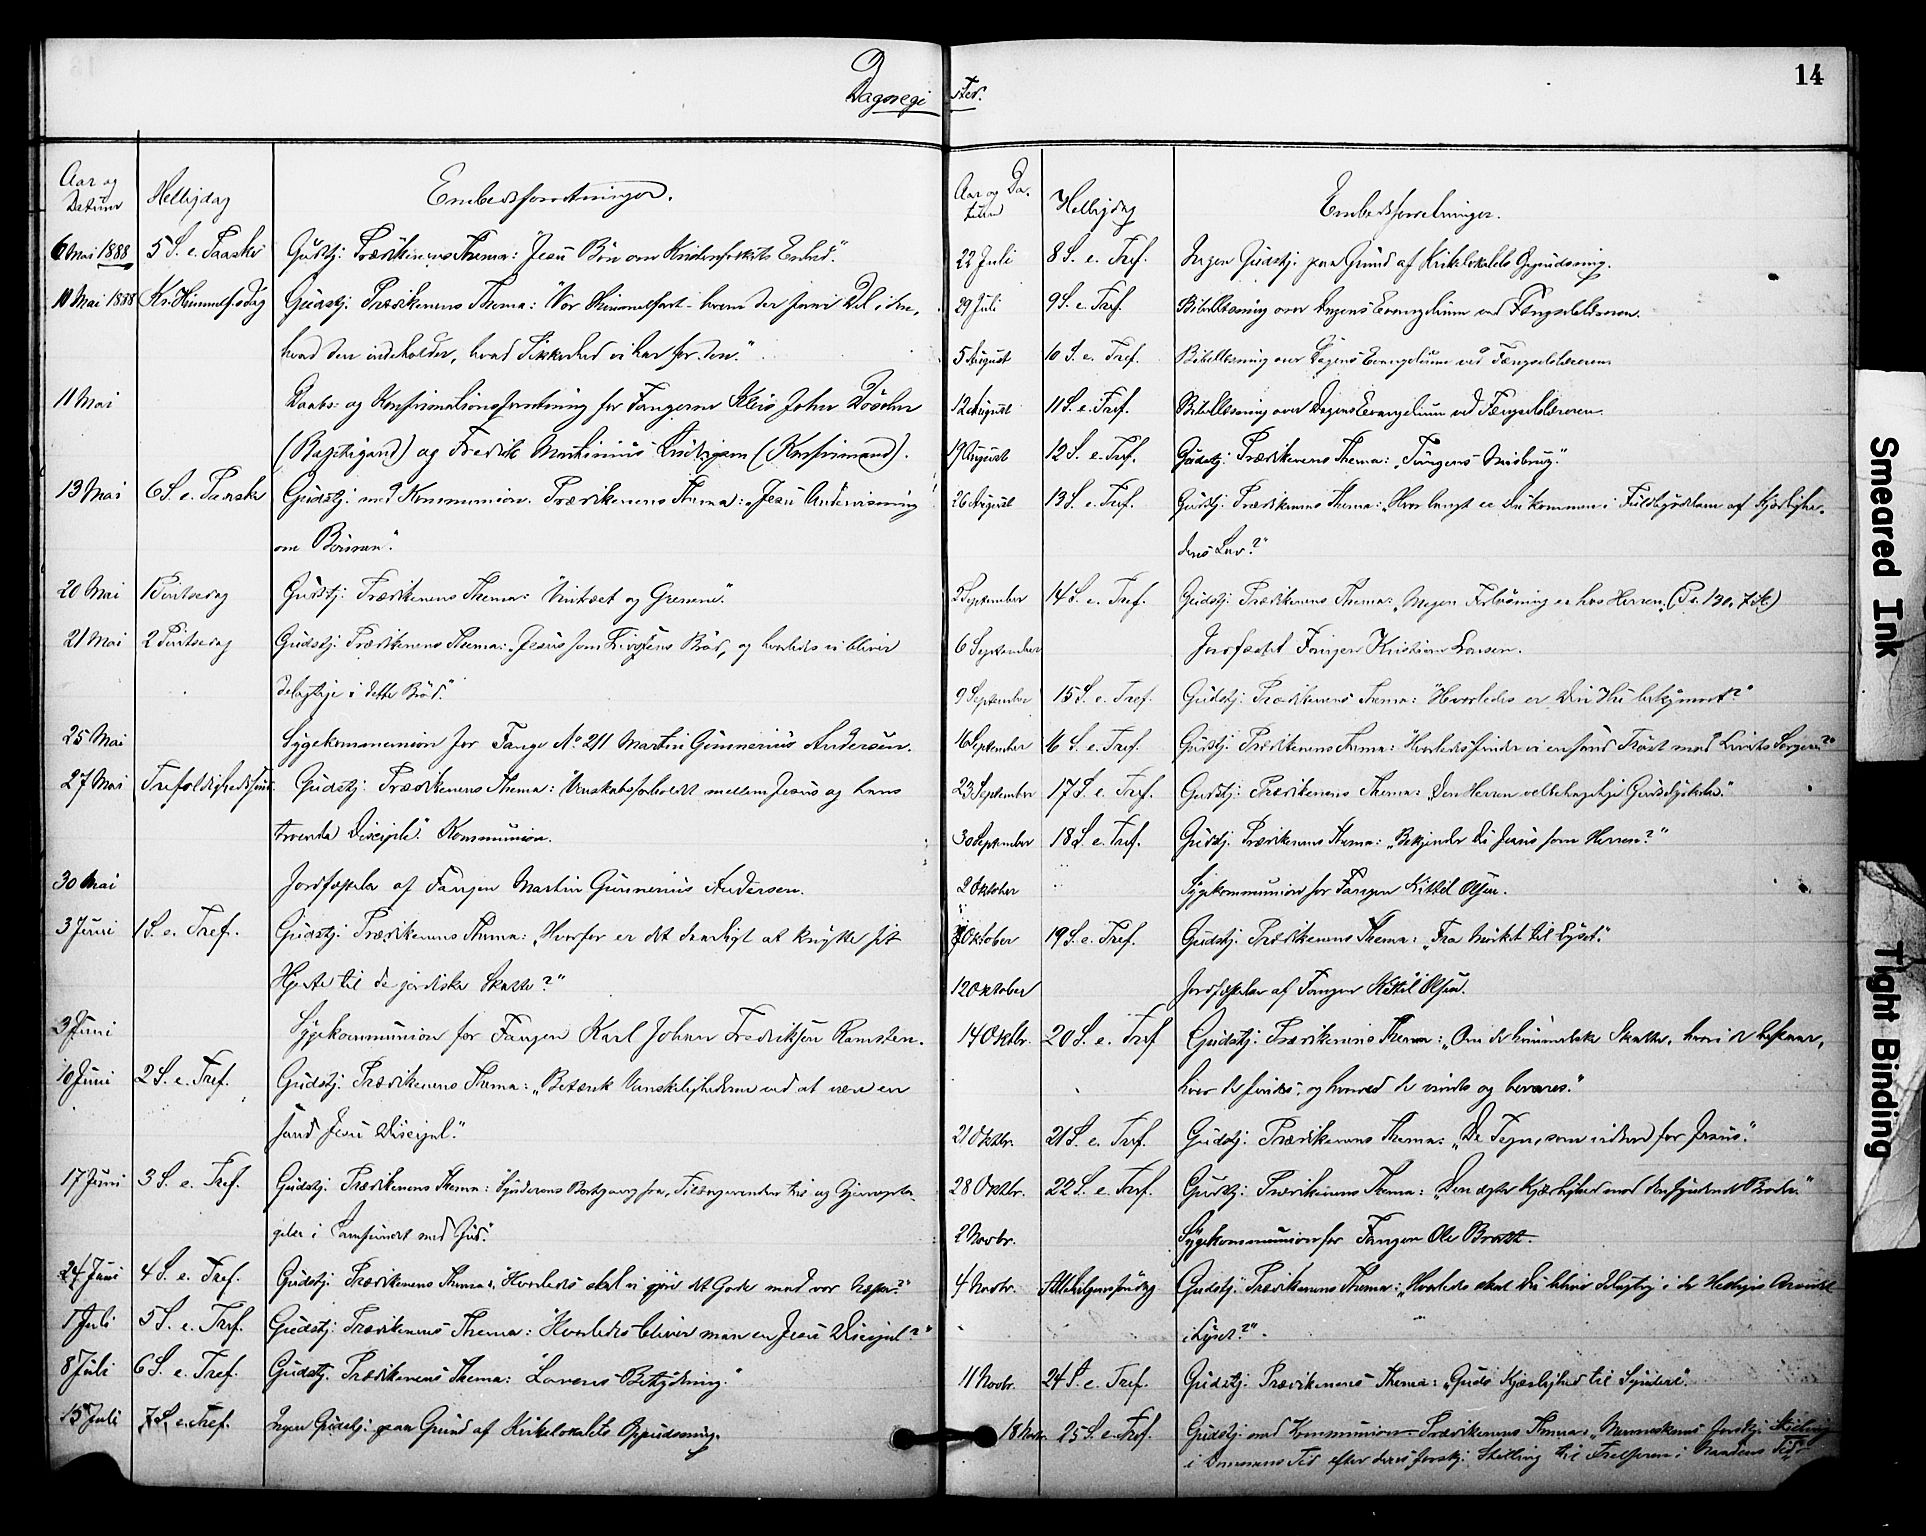 14
Dagregister.
Aar og Datum
Helligdag
Embedsforretninger.
6 Mai 1888 5 S. e. Paaske Gudstj. Prædikenens Thema: "Jesu Bøn om Enhed."
10 Mai 1888 Kr. Himmelf.dag Gudstj. Prædikenens Thema: "Vor Himmelfart - hvem der faar Del i den,
hvad den indeholder, hvad Sikkerhed vi har for den."
11 Mai Daabs- og Konfirmationsforretning for Fangerne John
og Fredrik (Konfirmand).
13 Mai 6 S. e. Paaske Gudstj. med Kommunion. Prædikenens Thema: "Jesu Undervisning
om Bønnen."
20 Mai 1 Pintsedag Gudstj. Prædikenens Thema: "Vintræet og Grenene."
21 Mai 2 Pintsedag Gudstj. Prædikenens Thema: "Jesus som Livsens Brød, og hvorledes vi bliver
delagtige i dette Brød."
25 Mai Sygekommunion for Fange No 211 Martin Gunnerius Andersen.
27 Mai Trefoldighedssønd. Gudstj. Prædikenens Thema: "Venskabsforholdet mellem Jesus og hans
troende Disciple." Kommunion.
30 Mai Jordfæstelse af Fangen Martin Gunnerius Andersen.
3 Juni 1 S. e. Tref. Gudstj. Prædikenens Thema: "Hvorfor er det daarligt at knytte sit
Hjerte til de jordiske Skatte?"
3 Juni Sygekommunion for Fangen Karl Johan Fredriksen Ramsten.
10 Juni 2 S. e. Tref. Gudstj. Prædikenens Thema: "Betænk Vanskelighederne ved at være en
sand Jesu Discipel."
17 Juni 3 S. e. Tref. Gudstj. Prædikenens Thema: "Synderens Bortgang fra, Tilbagevenden til og
i Samfundet med Gud."
24 Juni 4 S. e. Tref. Gudstj. Prædikenens Thema: "Hvorledes skal vi gjøre det Gode mod vor Næste?"
1 Juli 5 S. e. Tref. Gudstj. Prædikenens Thema: "Hvorledes bliver man en Jesu Discipel?"
8 Juli 6 S. e. Tref. Gudstj. Prædikenens Thema: "Lovens Betydning."
15 Juli 7 S. e. Tref. Ingen Gudstj. paa Grund af Kirkelokalets Oppudsning.
Aar og Datum
Helligdag
Embedsforretninger.
22 Juli 8 S. e. Tref. Ingen Gudstj. paa Grund af Kirkelokalets Oppudsning.
29 Juli 9 S. e. Tref. Bibellæsning over Dagens Evangelium ved Fængselslæreren.
5 August 10 S. e. Tref. Bibellæsning over Dagens Evangelium ved Fængselslæreren.
12 August 11 S. e. Tref. Bibellæsning over Dagens Evangelium ved Fængselslæreren.
19 August 12 S. e. Tref. Gudstj. Prædikenens Thema: "Tungens Misbrug."
26 August 13 S. e. Tref. Gudstj. Prædikenens Thema: "Hvor langt er Du kommen i Fuldbyrdelsen af Kjærlighe-
dens Lov?"
2 September 14 S. e. Tref. Gudstj. Prædikenens Thema: "Megen Forløsning er hos Herren." (Ps. 130, 7)
6 September Jordfæstet Fangen Kristian Larsen.
9 September 15 S. e. Tref. Gudstj. Prædikenens Thema: "Hvorledes er Din Hu bekymret?"
16 September 16 S. e. Tref. Gudstj. Prædikenens Thema: "Hvorledes finder vi en sand Trøst mod Livets Sorger?"
23 September 17 S. e. Tref. Gudstj. Prædikenens Thema: "Den Herren velbehagelige Gudsdyrkelse."
30 September 18 S. e. Tref. Gudstj. Prædikenens Thema: "Bekjender Du Jesus som Herren?"
2 Oktober Sygekommunion for Fangen Kittil Olsen.
7 Oktober 19 S. e. Tref. Gudstj. Prædikenens Thema: "Fra Mørket til Lyset."
12 Oktober Jordfæstelse af Fangen Kittil Olsen.
14 Oktbr. 20 S. e. Tref Gudstj. Prædikenens Thema: "Om de himmelske Skatte, hvori de bestaar,
hvor de findes, og hvorved de vindes og bevares."
21 Oktbr. 21 S. e. Tref. Gudstj. Prædikenens Thema: "De Tegn, som vidner for Jesus."
28 Oktbr. 22 S. e. Tref. Gudstj. Prædikenens Thema: "Den ægte Kjærlighed mod den syndende Broder."
2 Novbr. Sygekommunion for Fangen Ole Bratt.
4 Novbr. Allehelgenssøndag Gudstj. Prædikenens Thema: "Hvorledes skal Du blive delagtig i de Helliges Arvedel
i Lyset?"
11 Novbr. 24 S. e. Tref. Gudstj. Prædikenens Thema: "Guds Kjærlighed til Syndere."
18 Novbr. 25 S. e. Tref. Gudstj. med Kommunion. Prædikenens Thema: "Menneskenes forskj. Stilling
i Dommens Tid efter deres forskj. Stilling til Frelseren i Naadens Tid."
Smeared Ink
Tight Binding